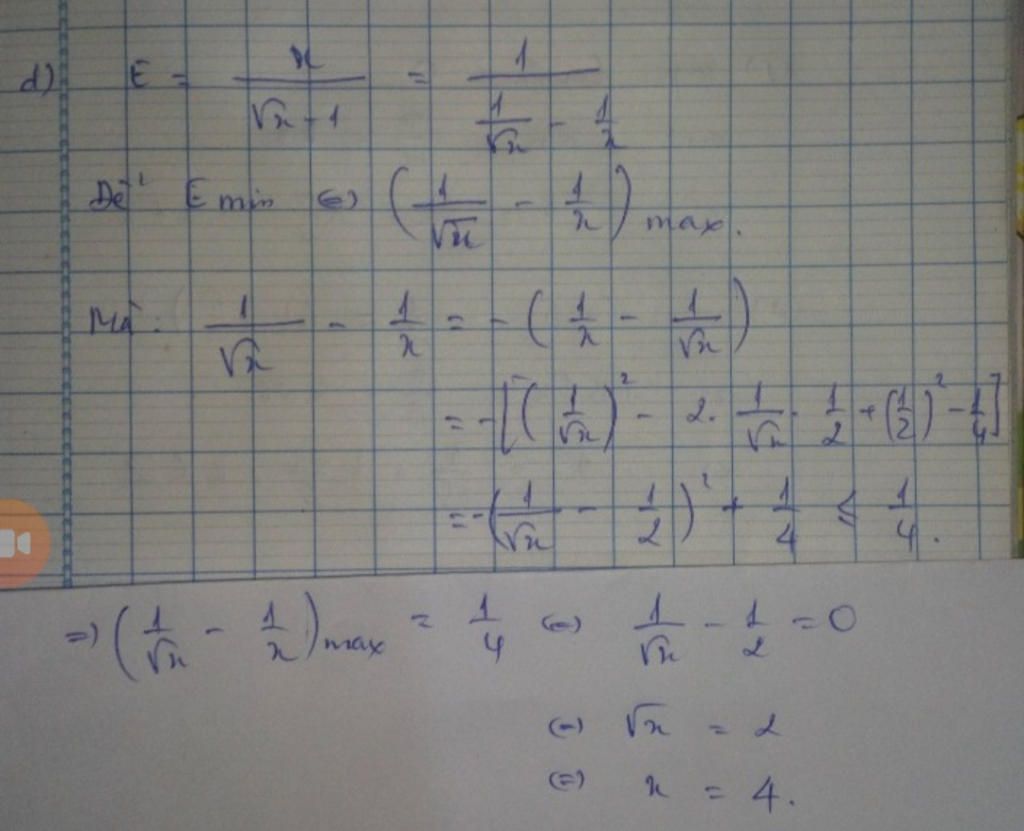 d) E = x/(√x - 1) = 1/(1/√x - 1/x)
Để E min ⇔ (1/√x - 1/x) max.
Mà: 1/√x - 1/x = -(1/x - 1/√x)
= -[(1/√x)² - 2. 1/√x . 1/2 + (1/2)² - 1/4]
= -(1/√x - 1/2)² + 1/4 ≤ 1/4.
=> (1/√x - 1/x) max = 1/4 ⇔ 1/√x - 1/2 = 0
⇔ √x = 2
⇔ x = 4.